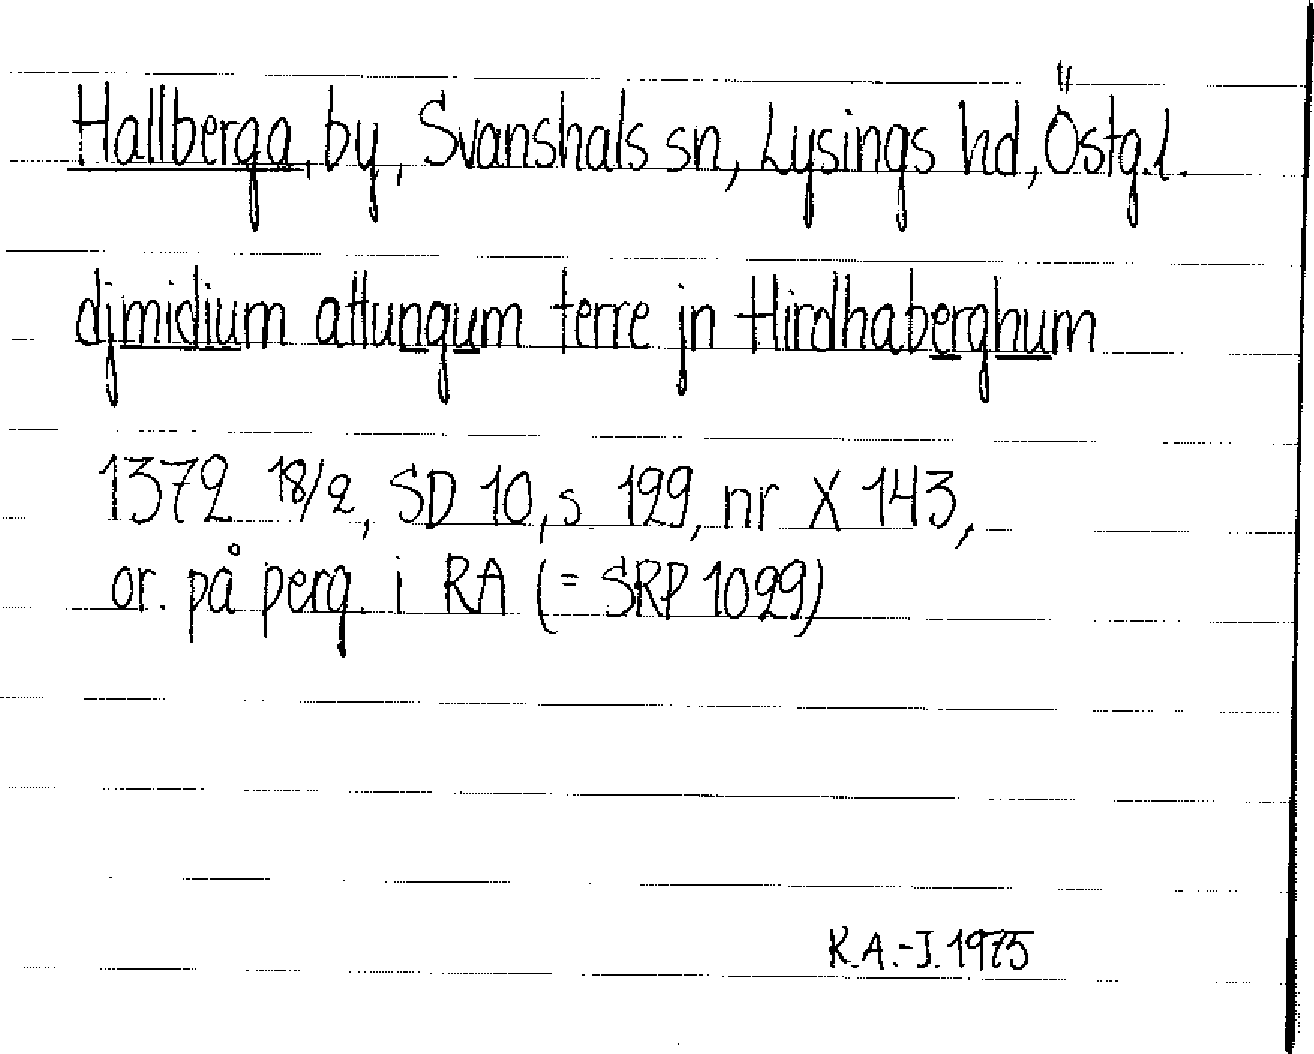 Hallberga, by, Svanshals sn, Lysings hd, Östg.l.
djmidium attungum terre jn Hirdhaberghum
1372 18/2, SD 10, s 199, nr X 143,
or. på perg. i RA (= SRP 1099)
K.A.-J. 1975